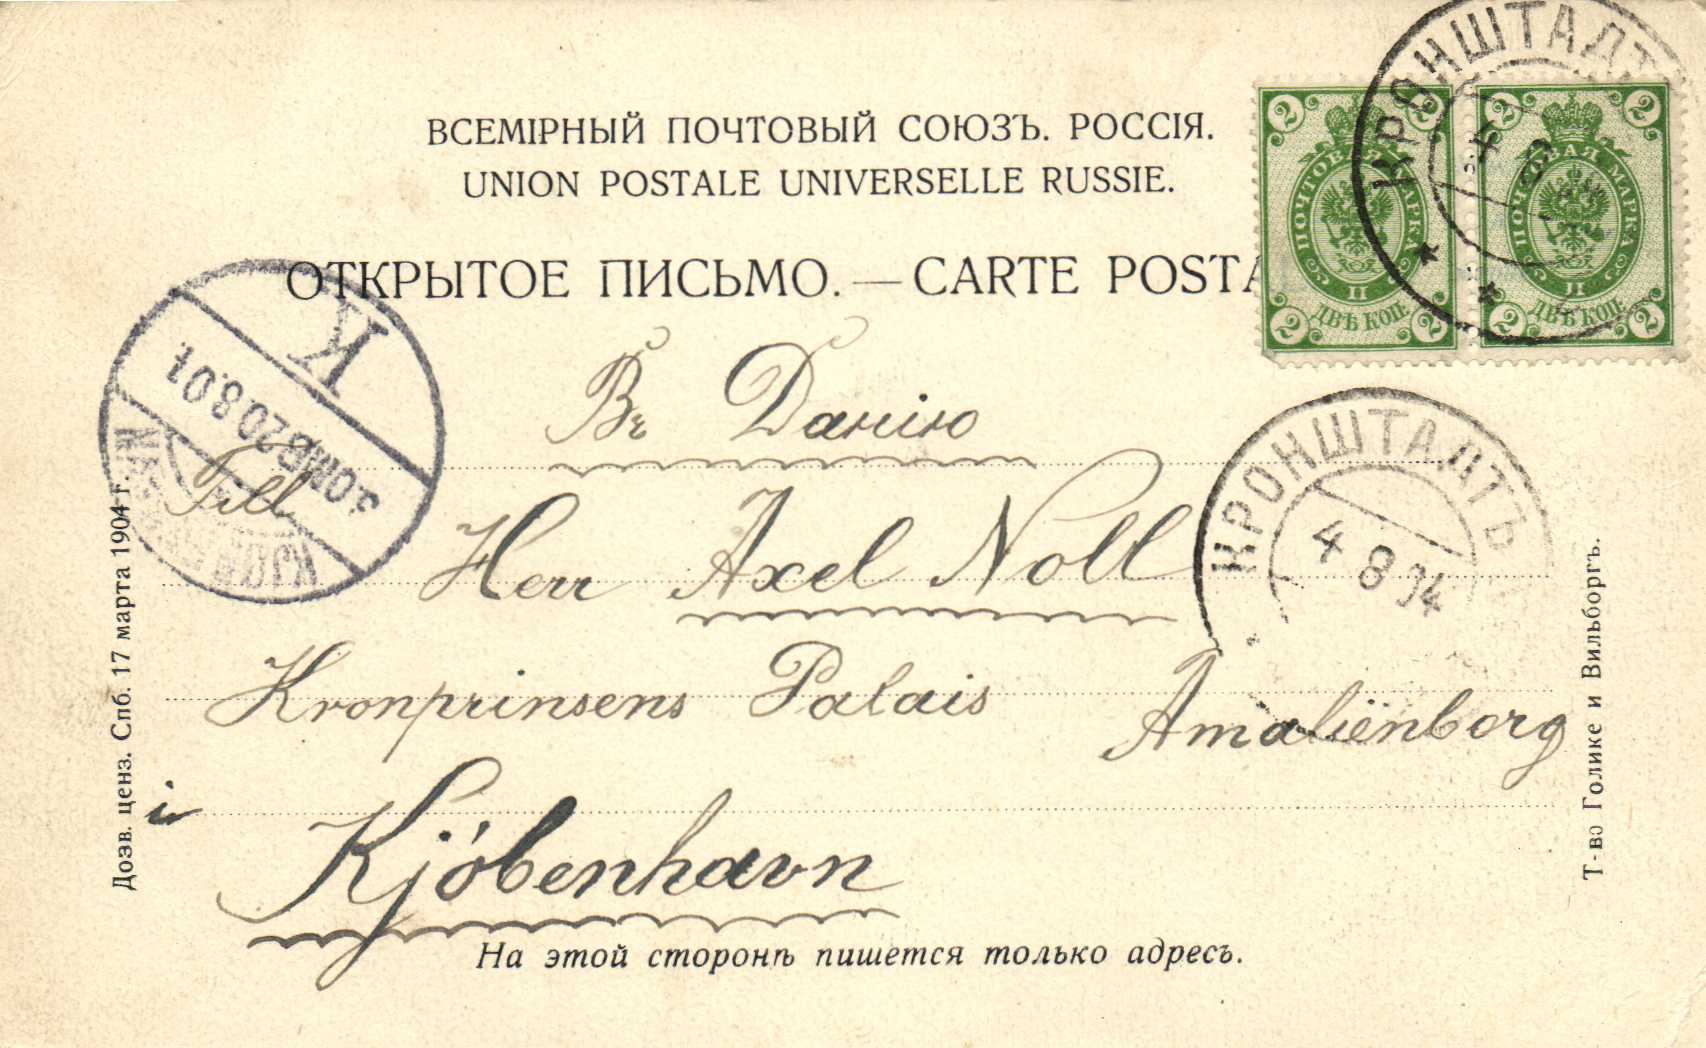 ВСЕМІРНЫЙ ПОЧТОВЫЙ СОЮЗЪ. РОССІЯ.
UNION POSTALE UNIVERSELLE RUSSIE.
ОТКРЫТОЕ ПИСЬМО. — CARTE POSTA
2 2
ПОЧТОВАЯ МАРКА
II
ДВѢ КОП.
2 2
2 2
ПОЧТОВАЯ МАРКА
II
ДВѢ КОП.
2 2
КРОНШТАДТЪ
K
3.OMB 20.8.04.
КРОНШТАДТЪ
4 8 04
Въ Данію
Till
Herr Axel Noll
Kronprinsens Palais Amaliënborg
i
Kjöbenhavn
На этой сторонѣ пишется только адресъ.
Дозв. ценз. Спб. 17 марта 1904 г.
Т-во Голике и Вильборгъ.